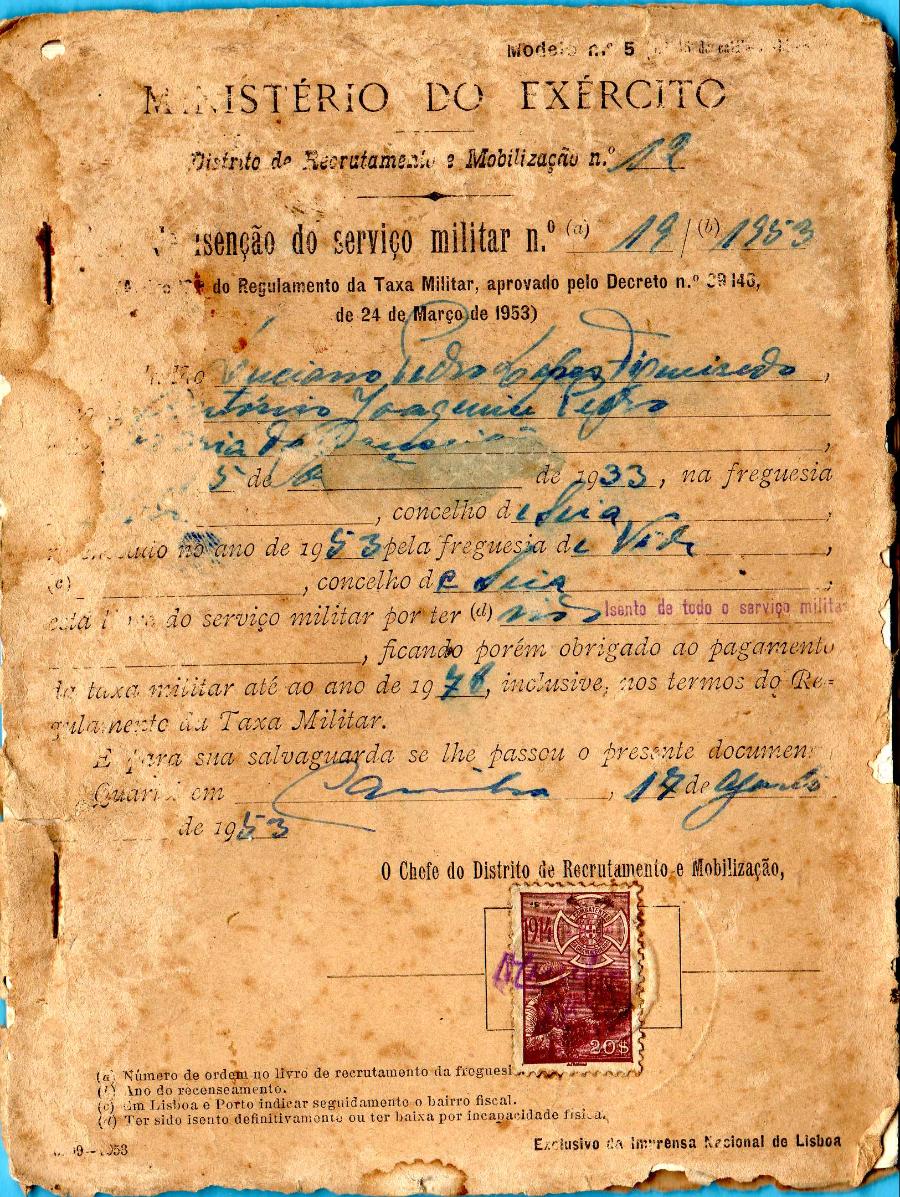 Modelo n.º 5
MINISTÉRIO DO EXÉRCITO
Distrito de Recrutamento e Mobilização n.º 12
isenção do serviço militar n.º (a) 19 / (b) 1953
do Regulamento da Taxa Militar, aprovado pelo Decreto n.º 39146,
de 24 de Março de 1953)
Luciano Pedro Lopes Figueiredo,
António Joaquim Pedro
Maria da Conceição,
5 de de 1933, na freguesia
, concelho de Seia,
no ano de 1953 pela freguesia de Vide,
(c) , concelho de Seia,
do serviço militar por ter (d) sido Isento de todo o serviço milita
, ficando porém obrigado ao pagamento
da taxa militar até ao ano de 1978, inclusive, nos termos do Re-
gulamento da Taxa Militar.
E para sua salvaguarda se lhe passou o presente documen
Quartel em Coimbra, 17 de Agosto
de 1953
O Chefe do Distrito de Recrutamento e Mobilização,
1914
20$
(a) Número de ordem no livro de recrutamento da freguesi
(b) Ano do recenseamento.
(c) Em Lisboa e Porto indicar seguidamente o bairro fiscal.
(d) Ter sido isento definitivamente ou ter baixa por incapacidade física.
Exclusivo da Imprensa Nacional de Lisboa